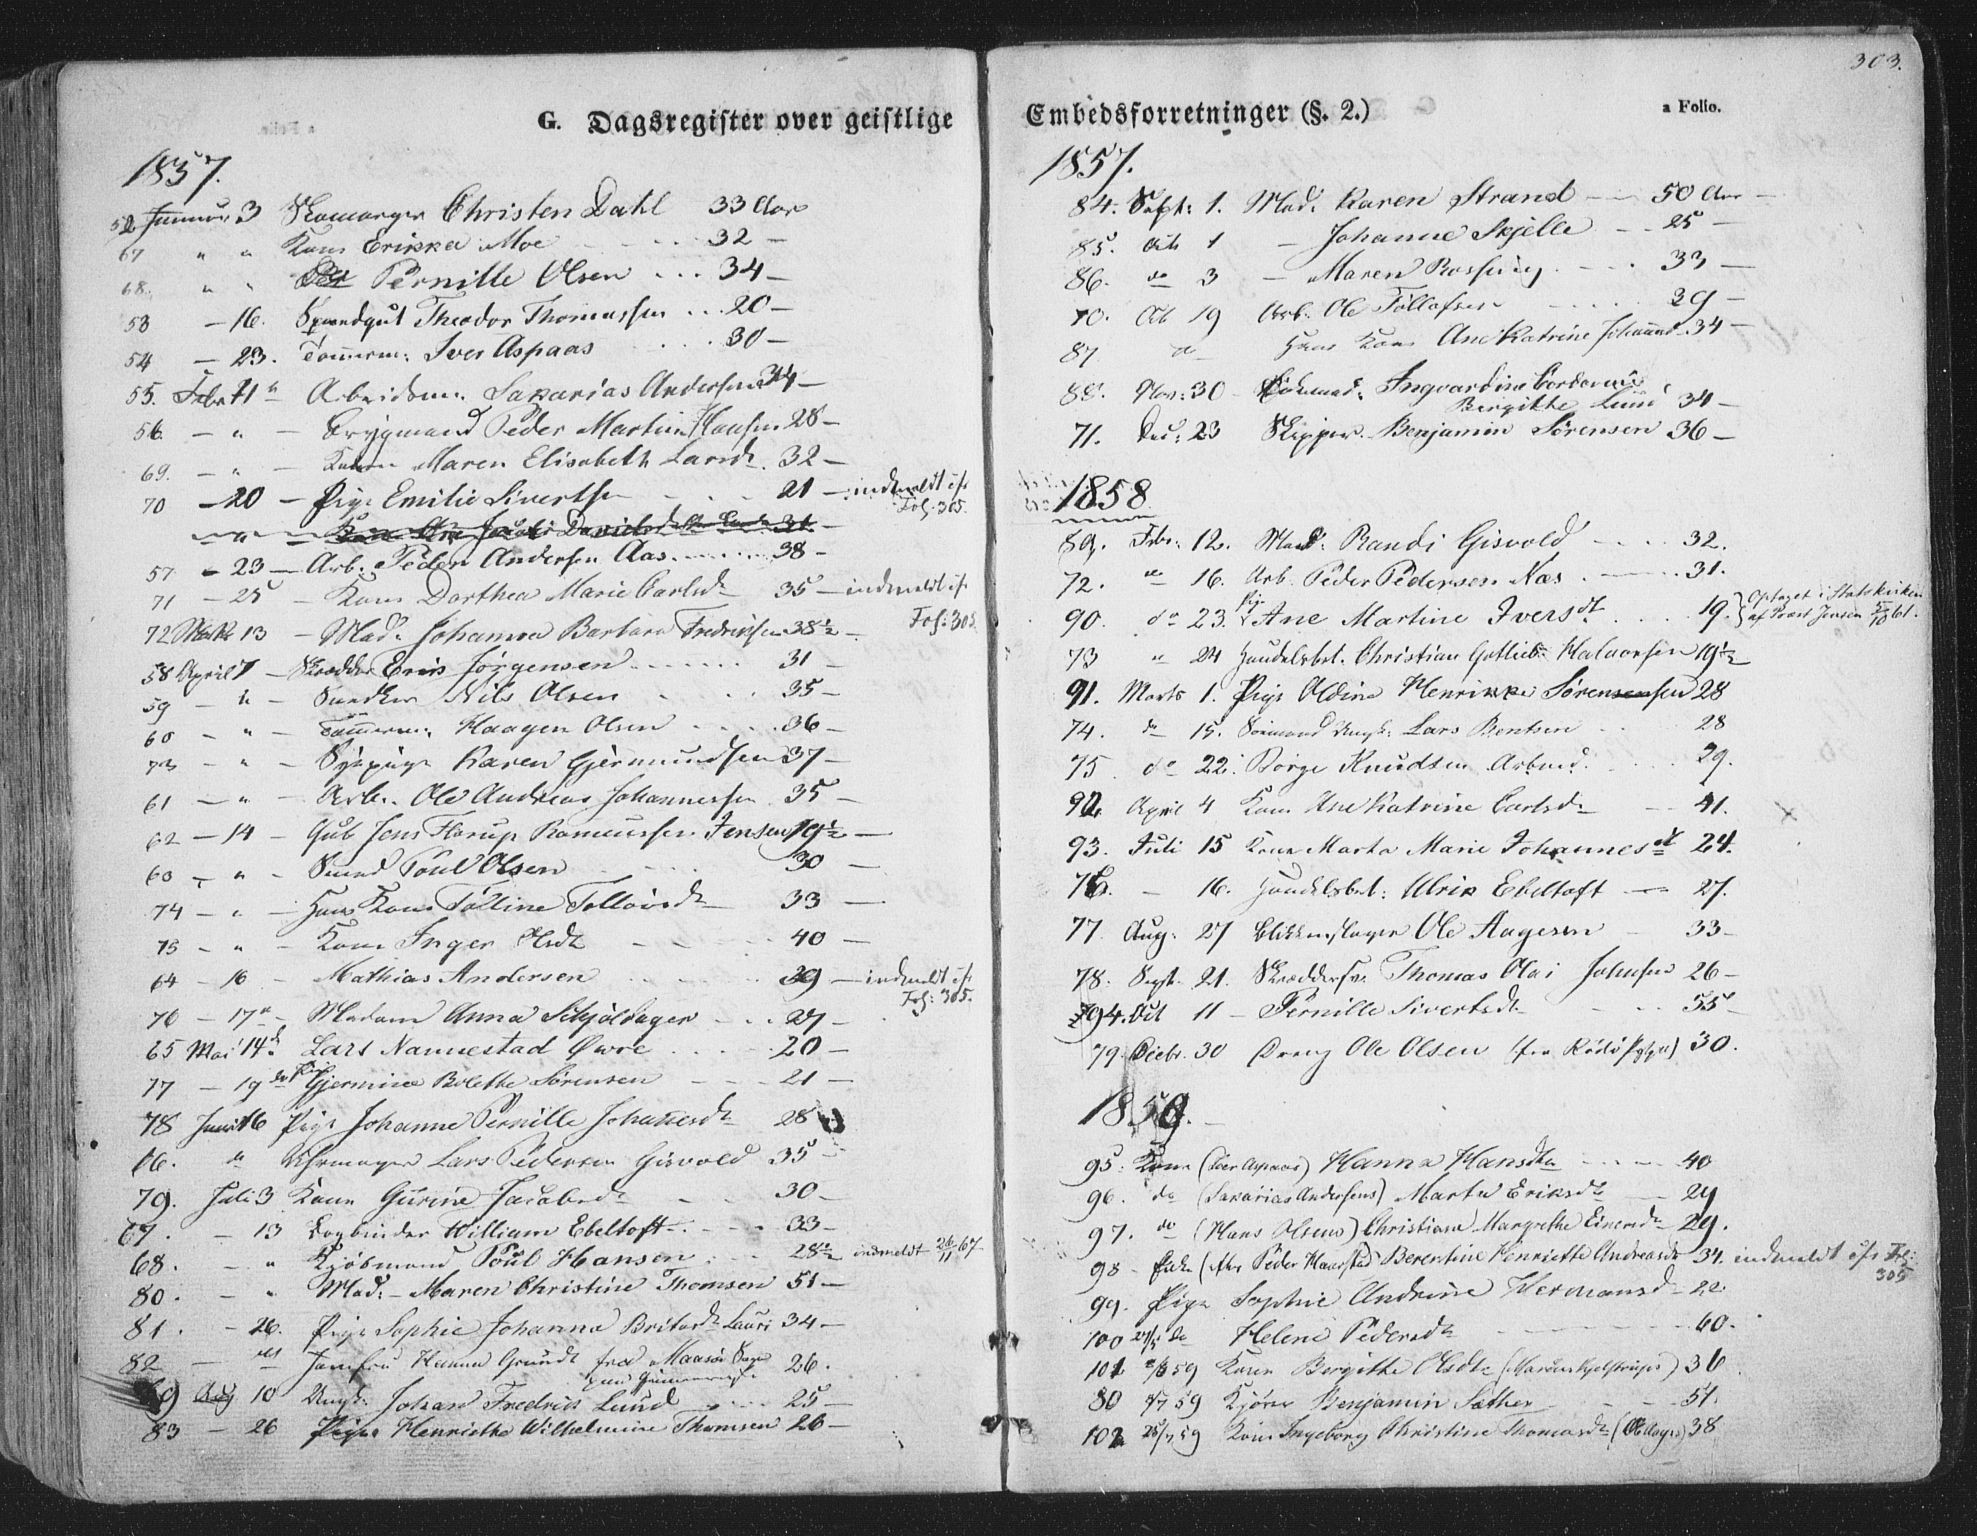 303.
G. Dagsregister over geistlige Embedsforretninger (§. 2.)
a Folio.
1857.
52 Januar 3 Skomager Christen Dahl 33 Aar
67 " " Kone Erikka Moe 32 –
68. " " Pernille Olsen 34 –
53 – 16. Theodor Thomassen 20 –
54 – 23. Tømmerm: Iver Aspaas 30 –
55. Febr Arbeidsm. Sakarias Andersen 34 –
56. – " – Brygmand Peder Martin Hansen 28 –
69. – " – Konen Maren Elisabeth Larsdr. 32 –
70 – 20 – Pige Emilie Sivertsen 21 – indmeldt
Fol. 305.
– " –
57 – 23 – Arb. Peder Andersen Aas. 38 –
71 – 25 – Kone Dorthea Marie Carlsdr 35 – indmeldt
Fol: 305
72 Marts 13 – Mad. Johanna Barbara Fredriksen 38½ –
58 April 7 – Skrædder Erik Jørgensen 31 –
59 – " – Nils Olsen 35 –
60 – " – Tømmerm: Haagen Olsen 36 –
73 – " – Sypige Karen Gjermundsen 37 –
61 – " – Arb. Ole Andreas Johannessen 35 –
62 – 14 – Gut Jens Harup Rasmussen Jensen 19½ –
63 – " – Poul Olsen 30 –
74 – " – Hans Kone Tolline Tollovsdr 33 –
75 – " – Kone Inger Olsdr 40 –
64 – 16 – Mathias Andersen 39 – indmeldt
Fol: 305.
76 – 17 – Madam Anna Schjøldager 27 –
65 Mai 14 Lars Nannestad Øwre 20 –
77 – 19 Pige Gjermine Bolethe Sørensen 21 –
78 Juni 16 Pige Johanne Pernille Johanesdr 28
66. " Uhrmager Lars Pedersen Gisvold 35 –
79. Juli 3 Kone Gurine Jacobsdr 30 –
67. – 13 Bogbinder William Ebeltoft 33 –
68. – " Kjøbmand Poul Hansen 28½ indmeldt 26/11 67
80. – " Mad: – Maren Christine Thomsen 51 –
81. – 26. Pige Sophie Johanna Lauri 34 –
82 – Jomfru Hanna Grundt fra Maasø 26.
69 Aug 10 Ungk. Johan Fredrik Lund 25 –
83 – 26 Pige Henriette Wilhelmine Thomsen 26 –
1857.
84. Sept: 1. Mad. Karen Strand 50 Aar –
85. Oct 1 – Johanne Skjelle 25 –
86. do 3 – Maren 33 –
70. Oct 19 Arb. Ole Tollofsen 39 –
87. do Hans Kone Ane Katrine Johannesdr 34 –
88. Nov: 30 Ingvardine
Birgitte Lund 34 –
71. Dec: 23 Skipper Benjamin Sørensen 36 –
1858.
89. Febr: 12. Mad: Randi Gisvold 32.
72. do 16. Arb. Peder Pedersen Næs 31.
90. do 23. Pige Ane Martine Iversdt 19. Optaget i Statskirken
af Provst Jensen
73 " 24 Handelsbet. Christian Gotlieb Halvorsen 19½
91. Marts 1. Pige Oldine Henrikke Sørensen 28
74. do 15. Lars Bentsen 28
75 do 22. Børge Knudtsen Arbmd. 29.
92. April 4 Kone Ane Katrine Carlsdr 41.
93. Juli 15 Kone Marta Marie Johannesdt 24.
76. – 16. Handelsbet: Ulrik Ebeltoft 27.
77. Aug. 27 Blikkenslager Ole Aagesen 33 –
78. Sept. 21. Skræddersv. Thomas Olai Johnsen 26 –
94. Oct 11 – Pernille Sivertsdr 35 –
79. Decbr. 30 Dreng Ole Olsen 30.
1859.
95. Kone (Iver Aspaas) Hanna Hansdtr 40
96. do (Sakarias Andersens) Marta Eriksdr 29
97. do (Hans Olsens) Christiana Margrethe Einersdr 29.
98 – Enke (efter Peder Haarstad) Berentine Henriette Andreasdr 34. indmeldt Fol:
305
99. Pige Sophie Andrine Hermansd 22
100 do Helene Pedersdr 60.
101 59 Karen Bergithe Olsdtr 36
80 59 Benjamin Sæther 51.
102 59 Kone Ingeborg Christine Thomasdr 38